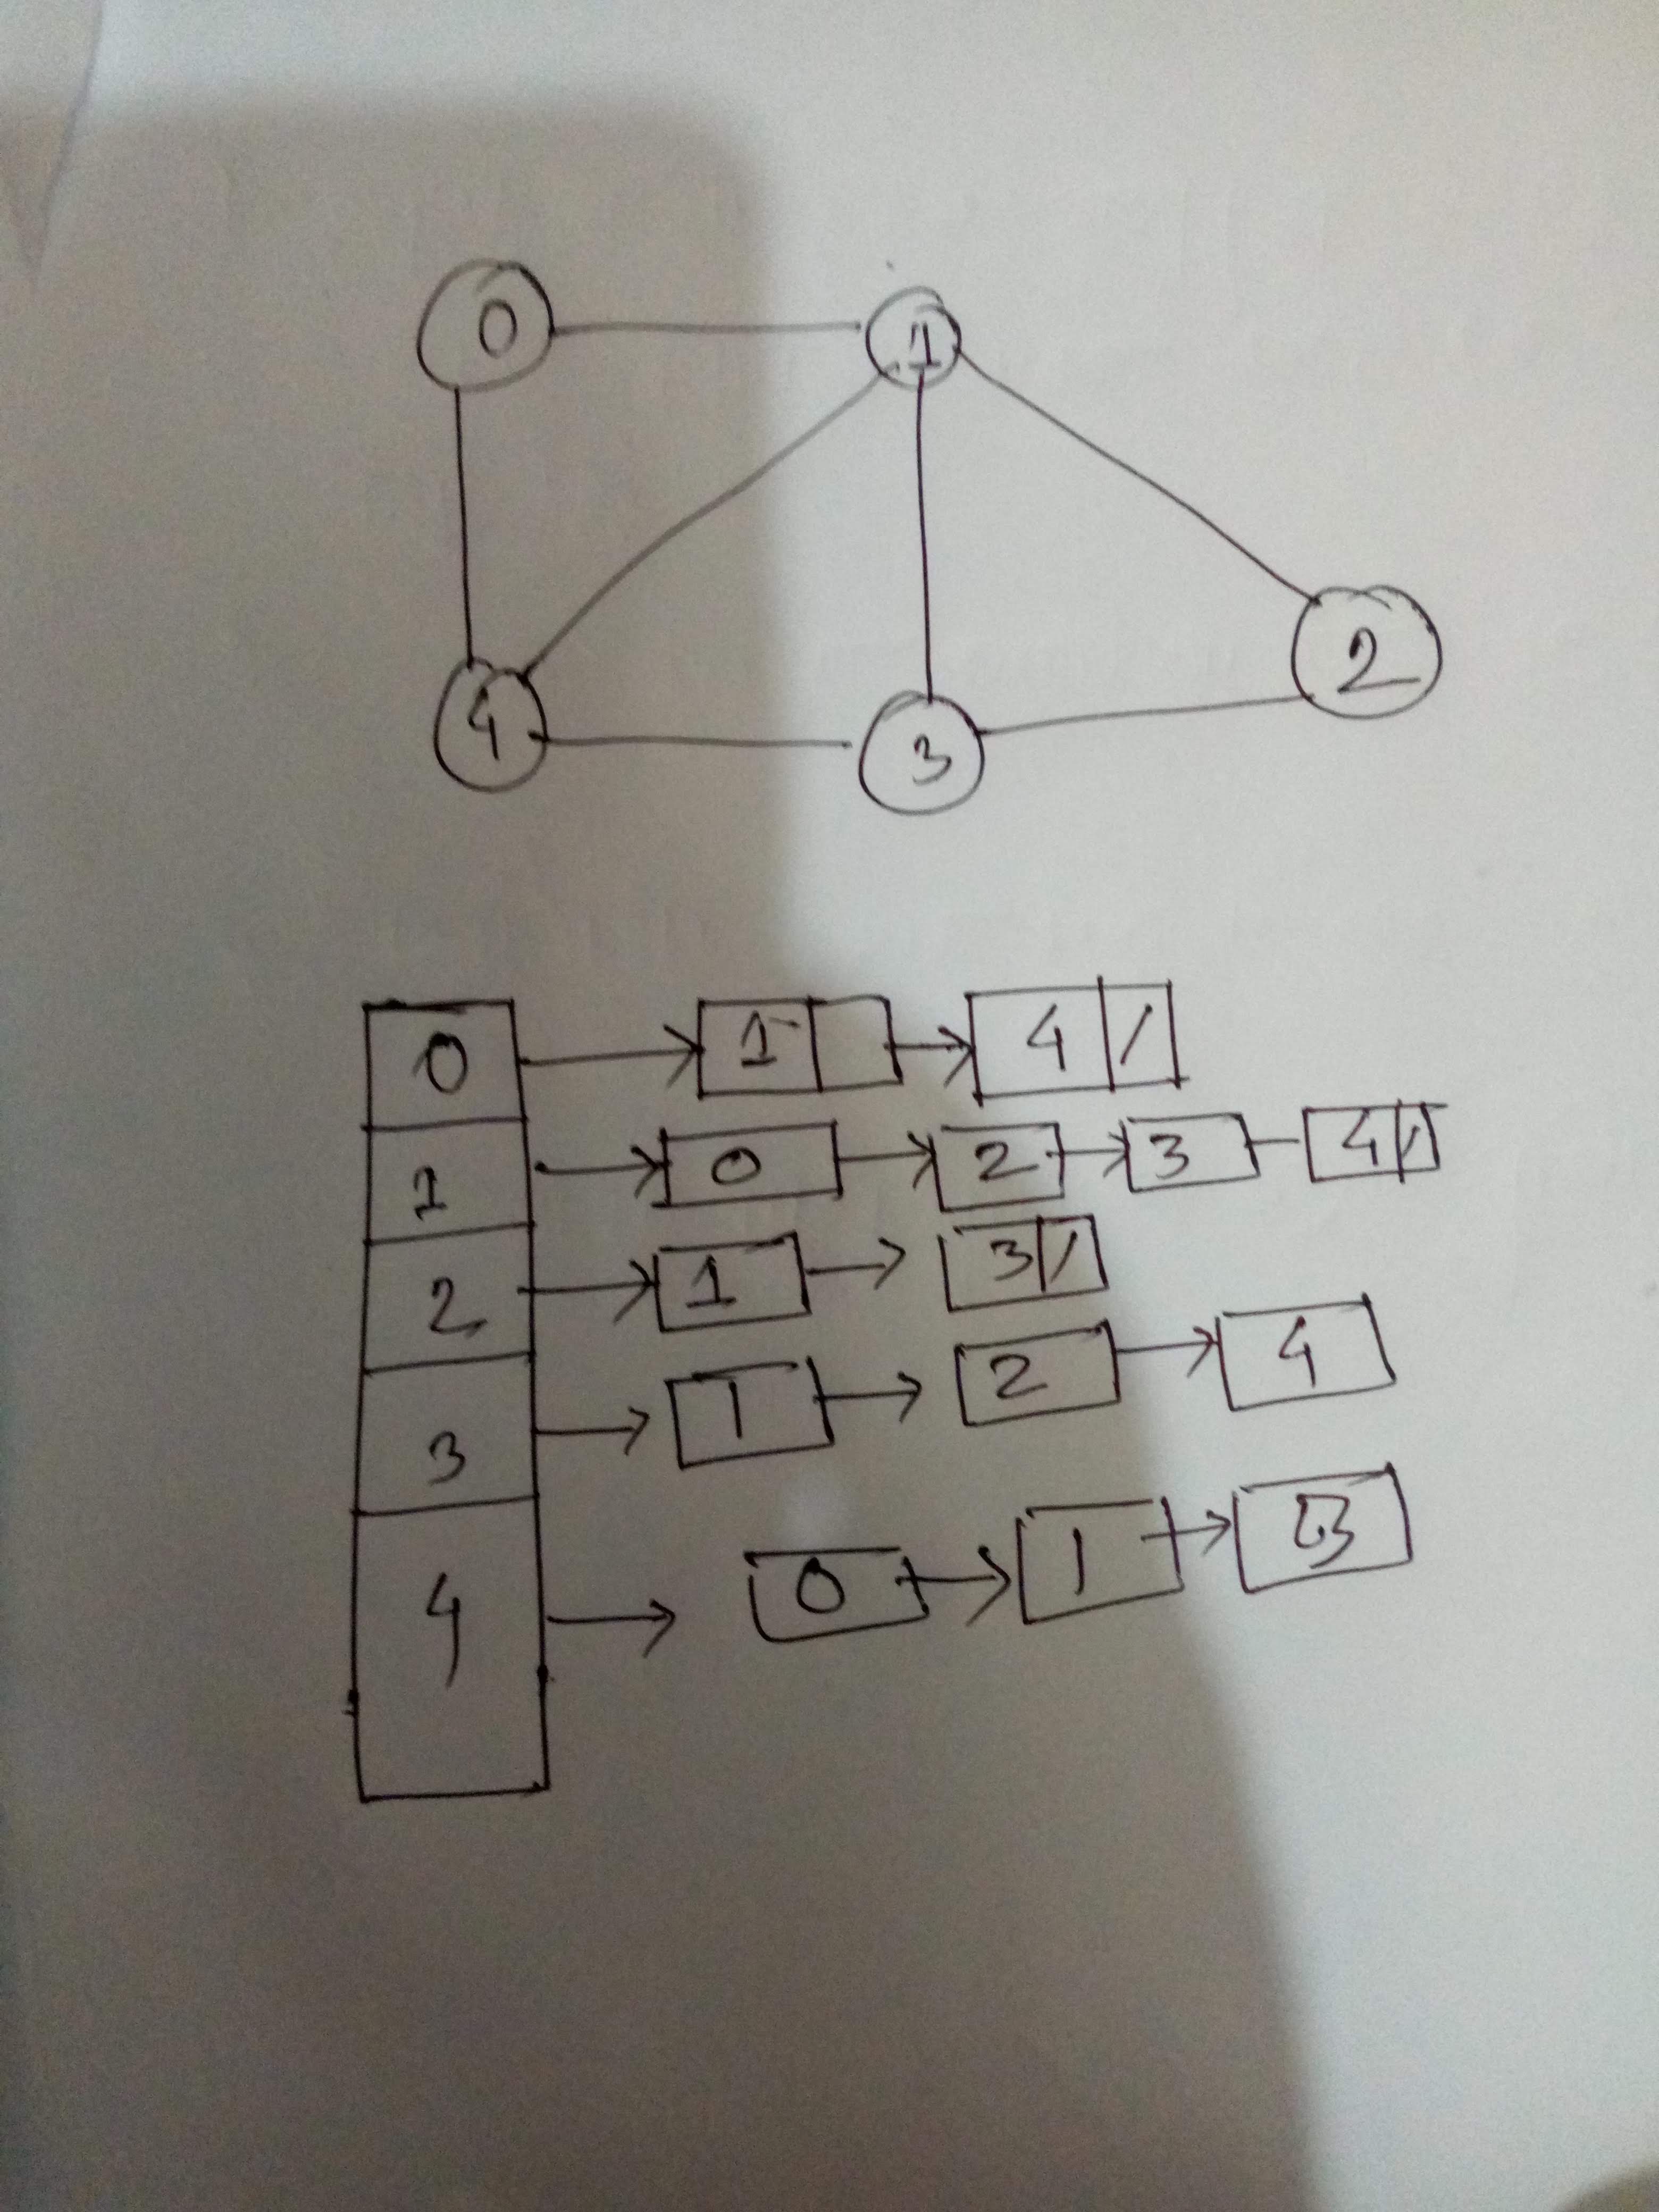 0 1
2
4 3
0 1 4 /
1 0 2 3 4 /
2 1 3 /
3 1 2 4
4 0 1 3